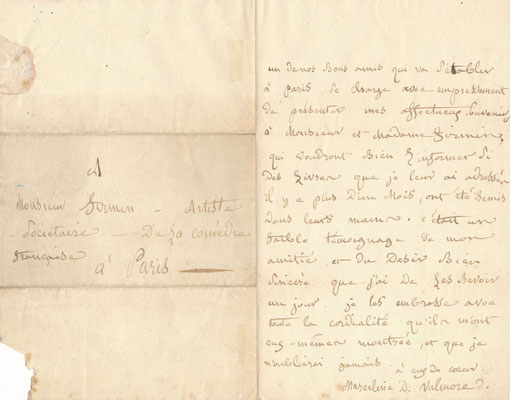 à
Monsieur Firmin - Artiste
- Sociétaire - De La comédie
française
à Paris
un de nos Bons amis qui va S'établir
à paris, Se charge avec empressement
de présenter mes affectueux Souvenirs
à Monsieur et Madame Firmin,
qui voudront Bien S'informer Si
Des Livres que je leur ai adressés
il y a plus D'un Mois, ont été Remis
Dans leurs mains. C'était un
faible témoignage de mon
amitié, et du Desir Bien
Sincère que j'ai De Les Revoir
un jour. je les embrasse avec
toute la cordialité qu'ils m'ont
eux-mêmes montrée, et que je
n'oublierai jamais. à eux de cœur.
Marceline D. Valmore